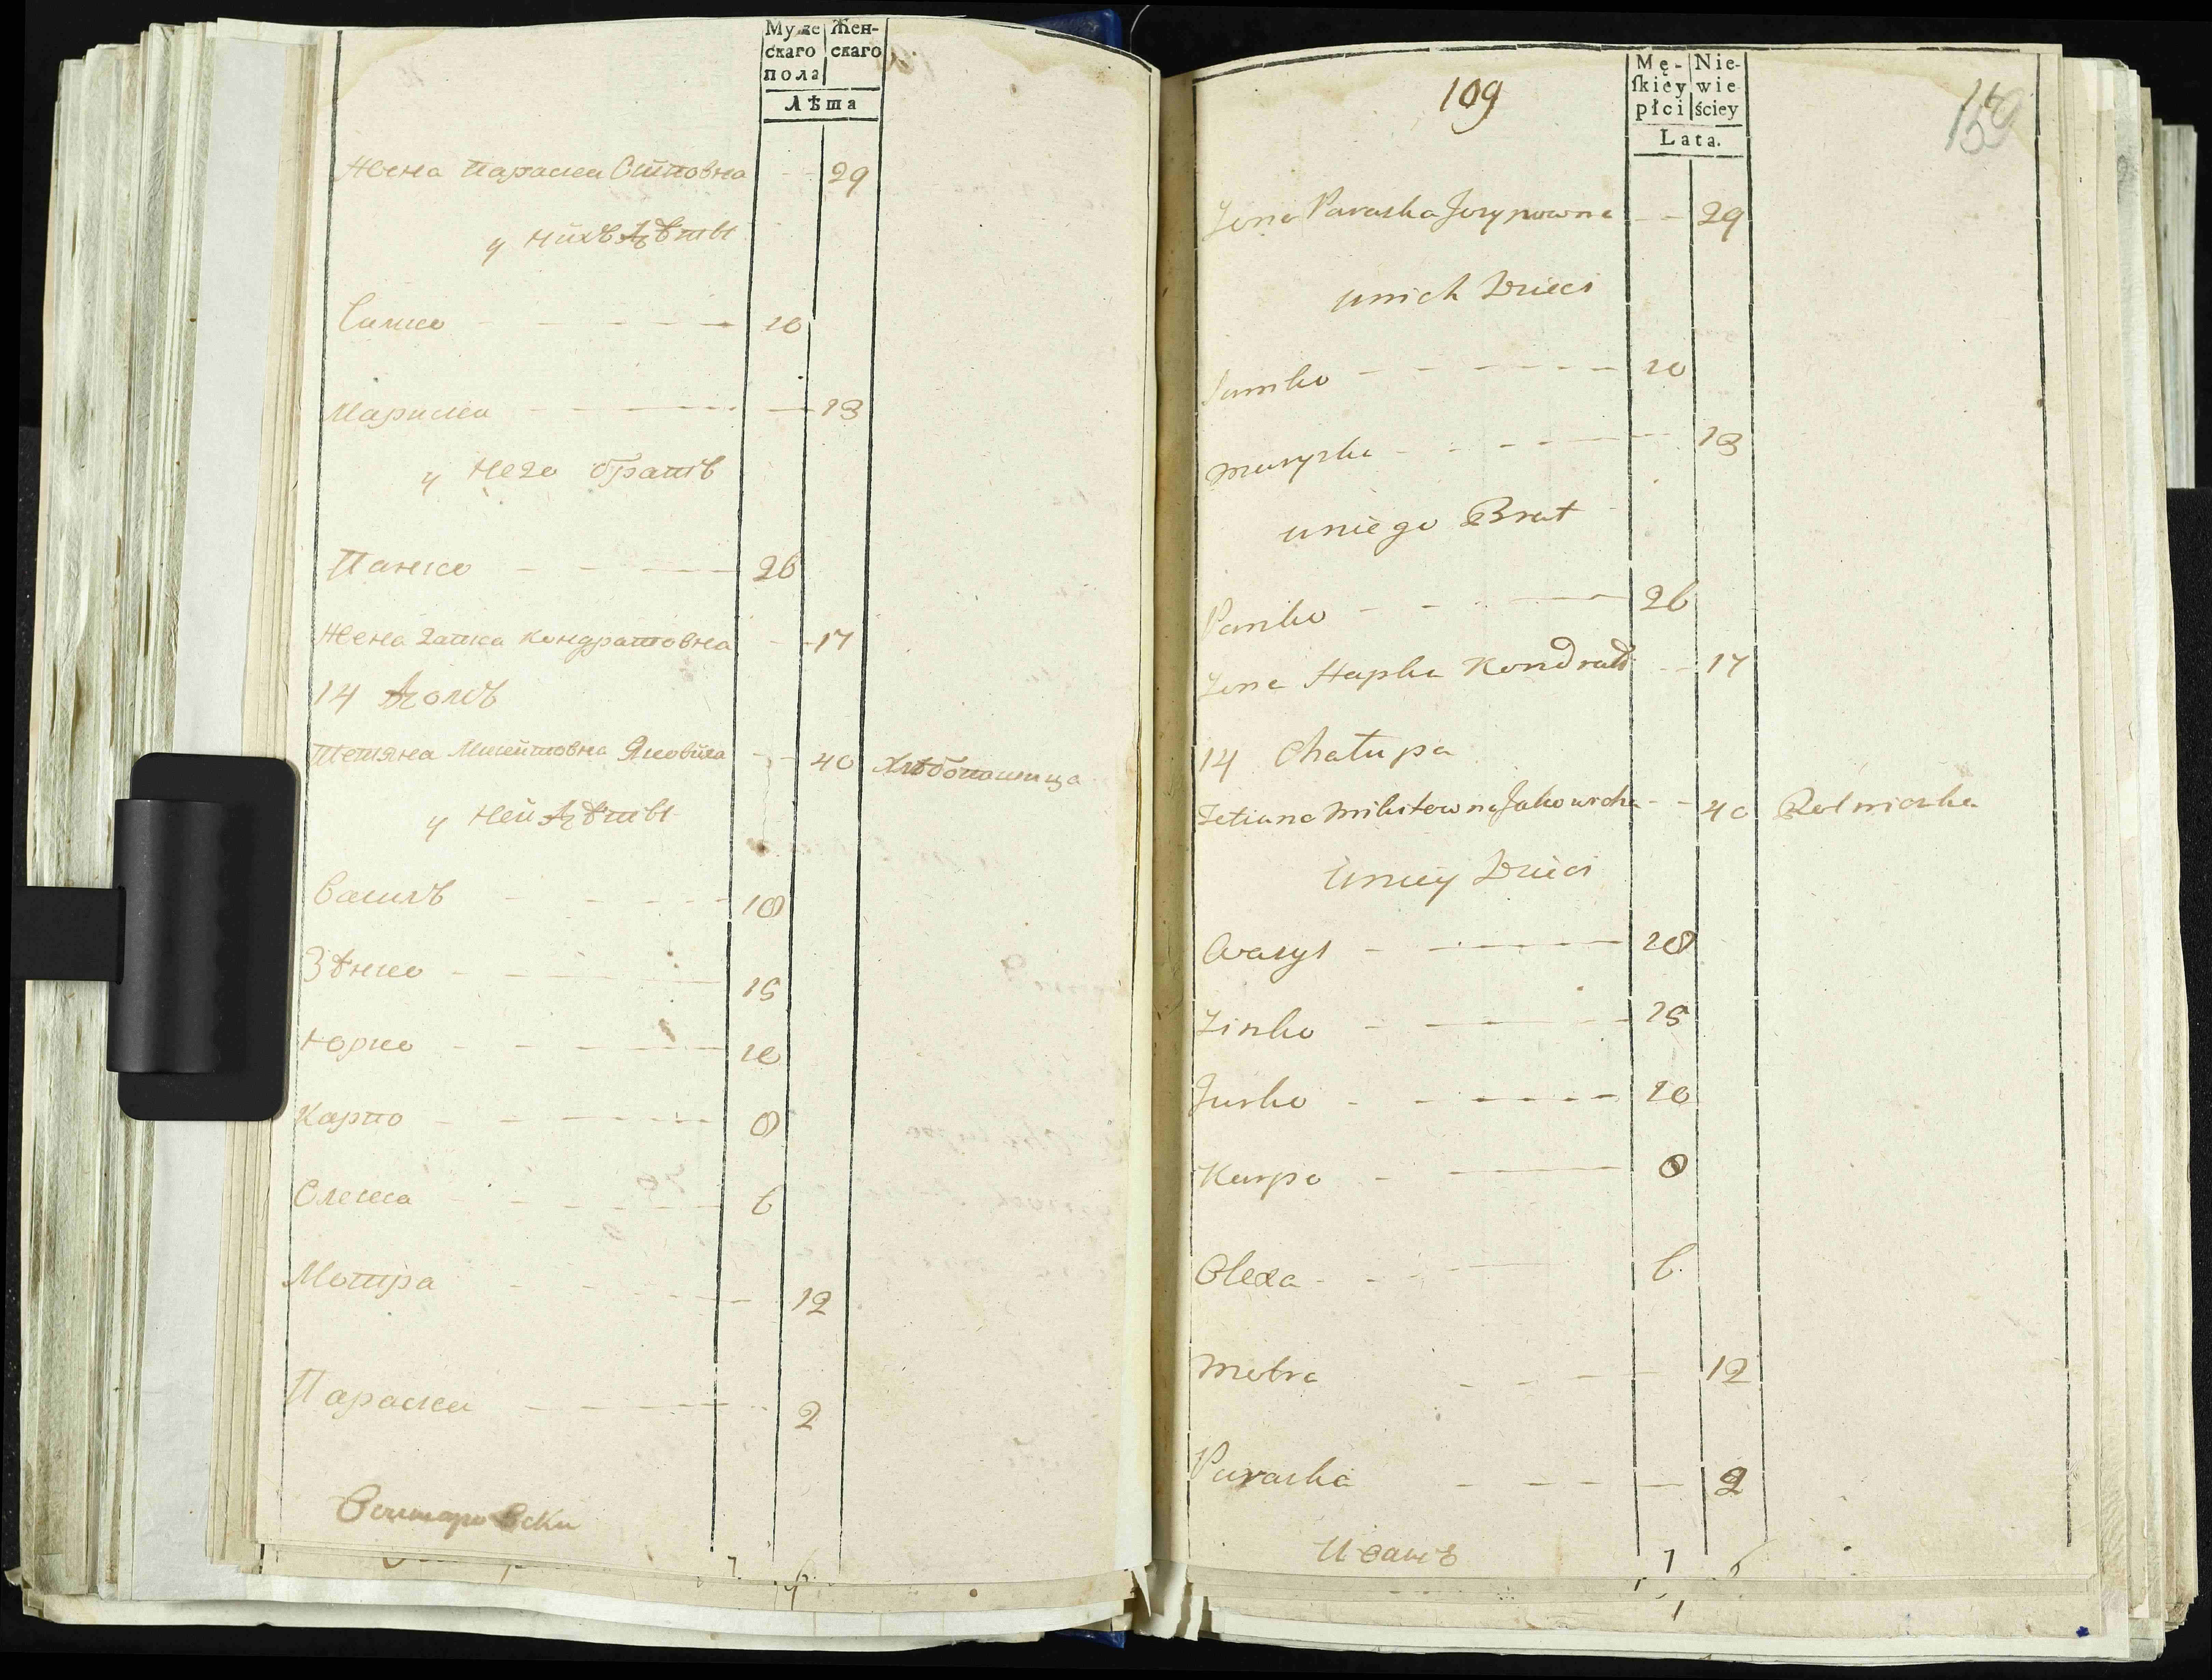 Муже Жен-
скаго скаго
пола
Лѣта
Жена Параска Ситовна 29
у нихъ дѣты
Самко 10
Мариска 13
у него братъ
Панко 26
Жена Гапка Кондратовна 17
14 домъ
Тетяна Микитовна Яковиха 40 Хлѣбопашица
у ней дѣты
Василь 18
Зѣнко 15
Юрко 10
Карпо 8
Олекса 6
Мотра 12
Параска 2
7
109
Mę- Nie-
ſkiey wie
płci ściey
Lata.
Zona Paraska Jozypowna 29
unich Dzieci
Samko 10
Maryska 13
uniego Brat
Panko 26
Zona Hapka Kondrato 17
14 Chałupa
Tetiana Mikitowna Jakowicha 40 Rolniczka
Uniey Dzieci
Wasyl 18
Zinko 15
Jurko 10
Karpo 8
Olexa 6
Motra 12
Paraska 2
Иванъ 7 6